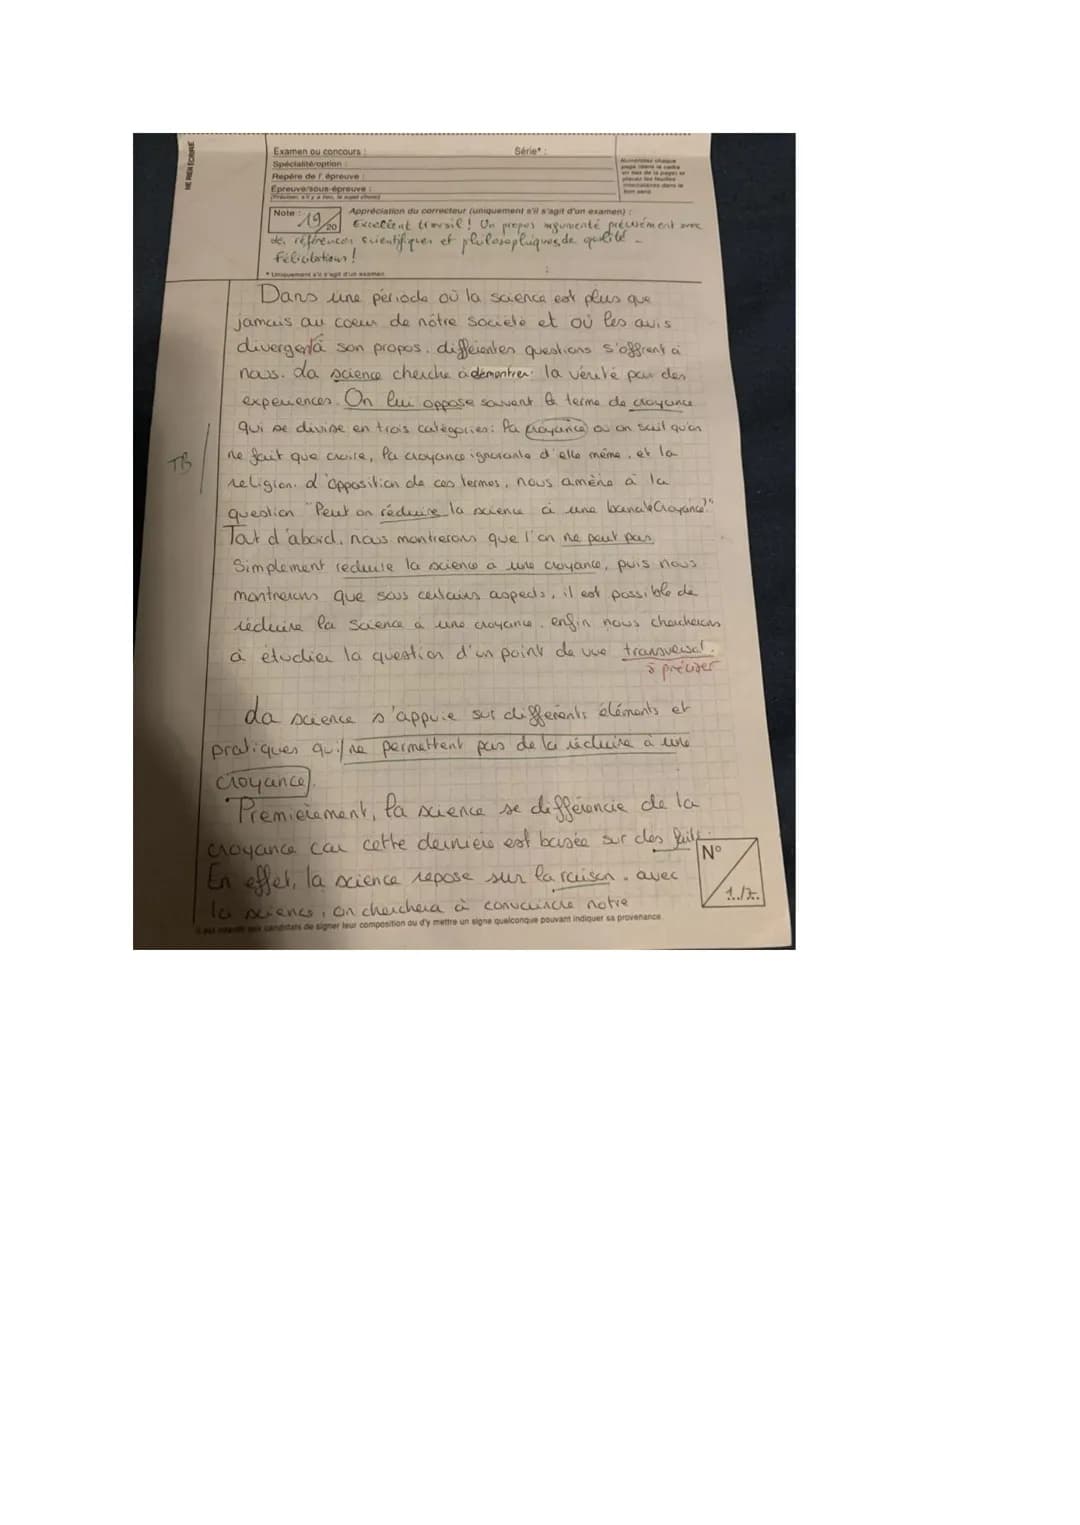 NE RIEN ÉCRIRE
Examen ou concours :
Série* :
Spécialité/option :
Repère de l'épreuve :
Épreuve/sous-épreuve :
(Préciser, s'il y a lieu, le sujet choisi)
Numérotez chaque
page (dans le cadre
en bas de la page) et
placez les feuilles
intercalaires dans le
bon sens
Note : 19/20
Appréciation du correcteur (uniquement s'il s'agit d'un examen) :
Excellent travail ! Un propos argumenté précisément avec
des références scientifiques et philosophiques de qualité -
Félicitations !
* Uniquement s'il s'agit d'un examen
Dans une période où la science est plus que
jamais au coeur de nôtre société et où les avis
divergent à son propos, différentes questions s'offrent à
nous. La science cherche à démontrer la vérité par des
expériences. On lui oppose souvent le terme de croyance
qui se divise en trois catégories : la croyance où on sait qu'on
ne fait que croire, la croyance ignorante d'elle même, et la
TB
religion. L'opposition de ces termes, nous amène à la
question "Peut on réduire la science à une banale croyance?"
Tout d'abord, nous montrerons que l'on ne peut pas
simplement réduire la science à une croyance, puis nous
montrerons que sous certains aspects, il est possible de
réduire la science à une croyance, enfin nous chercherons
à étudier la question d'un point de vue transversal.
à préciser
La science s'appuie sur différents éléments et
pratiques qui ne permettent pas de la réduire à une
croyance.
Premièrement, la science se différencie de la
croyance car cette dernière est basée sur des faits.
En effet, la science repose sur la raison, avec
la science, on cherchera à convaincre notre
N°
1../7..
Il est interdit aux candidats de signer leur composition ou d'y mettre un signe quelconque pouvant indiquer sa provenance.